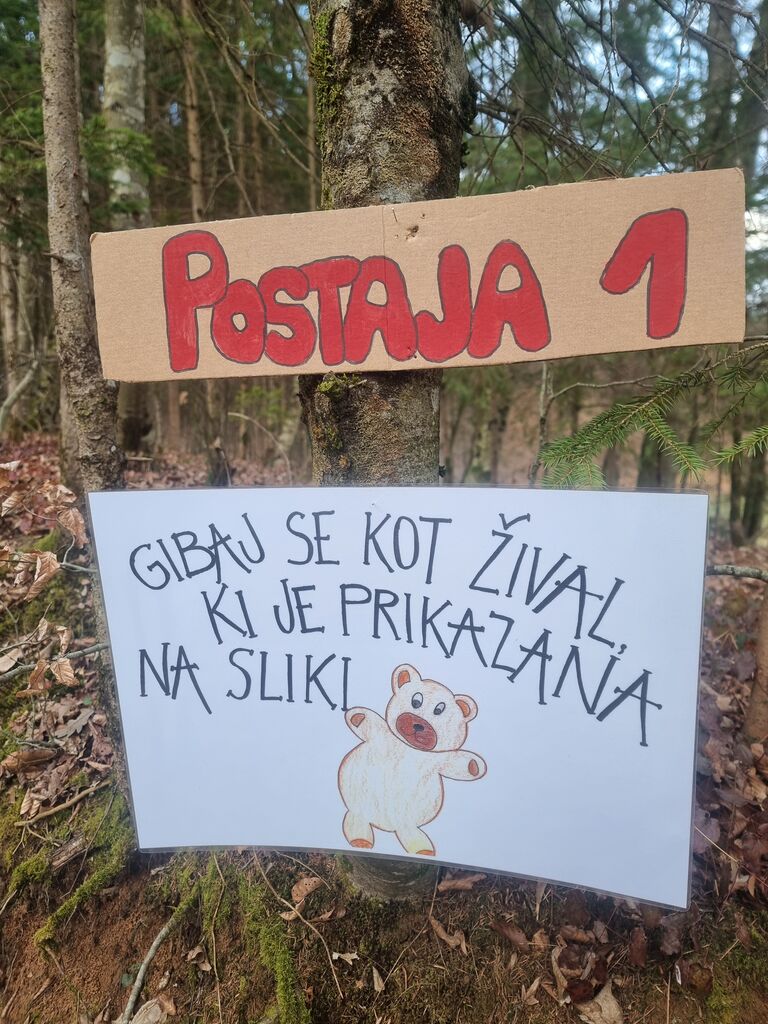 POSTAJA 1
GIBAJ SE KOT ŽIVAL,
KI JE PRIKAZANA
NA SLIKI